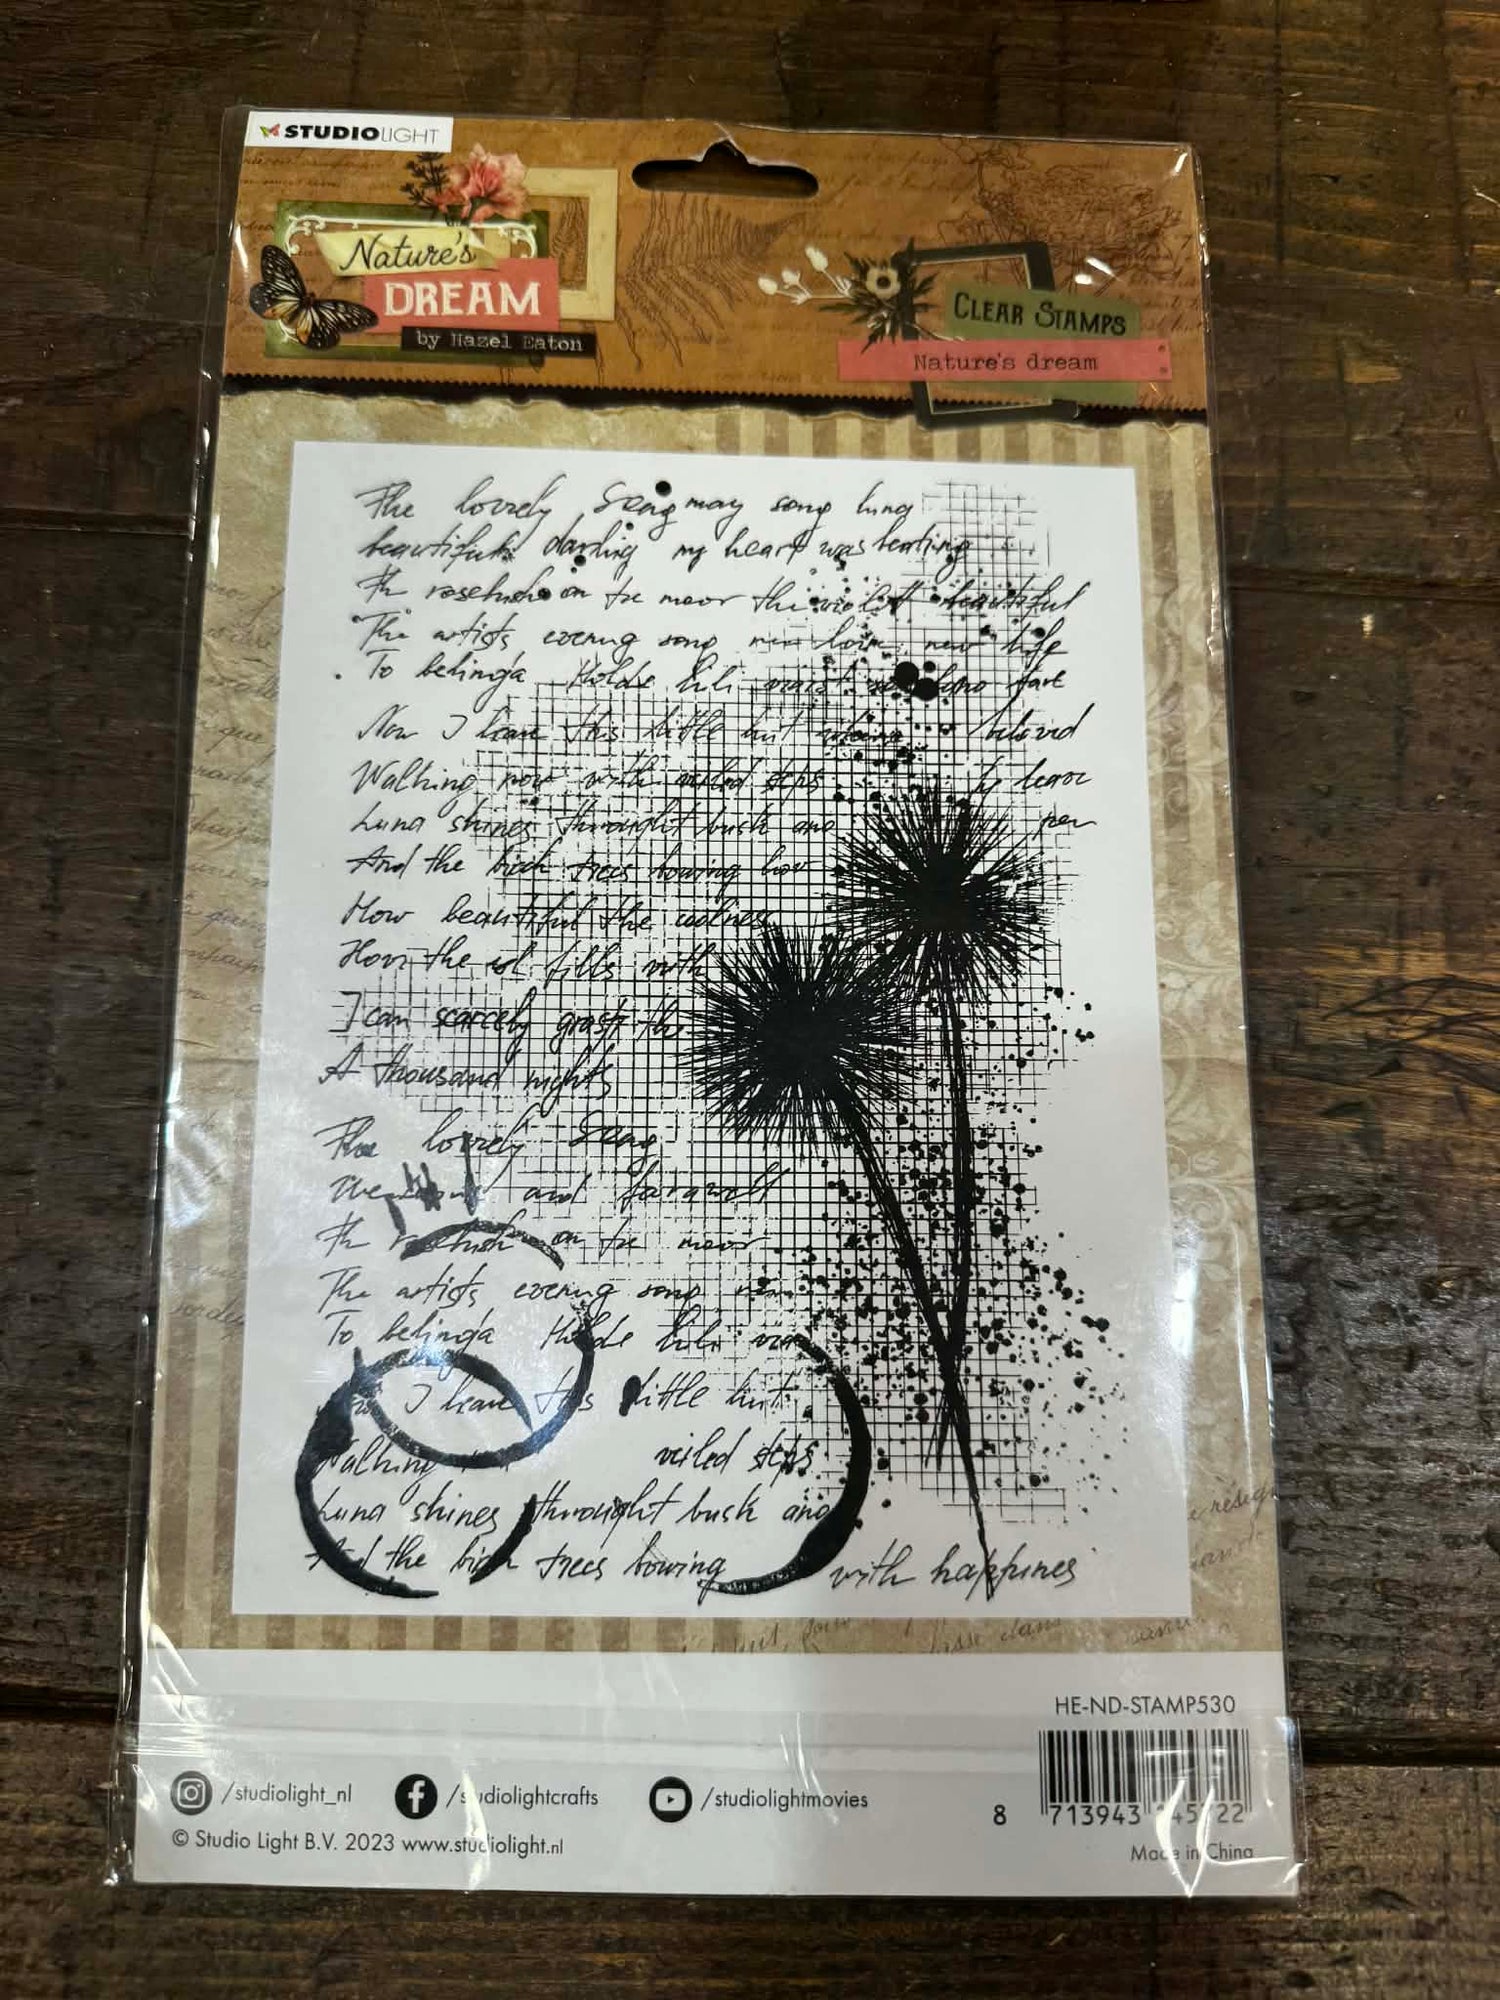 STUDIOLIGHT
Nature's
DREAM
by Hazel Eaton
CLEAR STAMPS
Nature's dream
The lovely Song may song luna
beautiful darling my heart was beating
on the moor the violett beautiful
The artists evening song new life
To belinga Holde
Now I leave this little hut beloved
Walking now with veiled steps by leave
Luna shines throught busk and
And the birch trees bowing low
How beautiful the coolness
How the fills with
I can scarcely grasp the
A thousand nights
The lovely Song
and farawell
on the moor
The artists evening song
To belinga Holde
I leave this little hut
Walking veiled steps
Luna shines throught busk and
And the birch trees bowing with happines
HE-ND-STAMP530
/studiolight_nl /studiolightcrafts /studiolightmovies
8 713943
© Studio Light B.V. 2023 www.studiolight.nl
Made in China